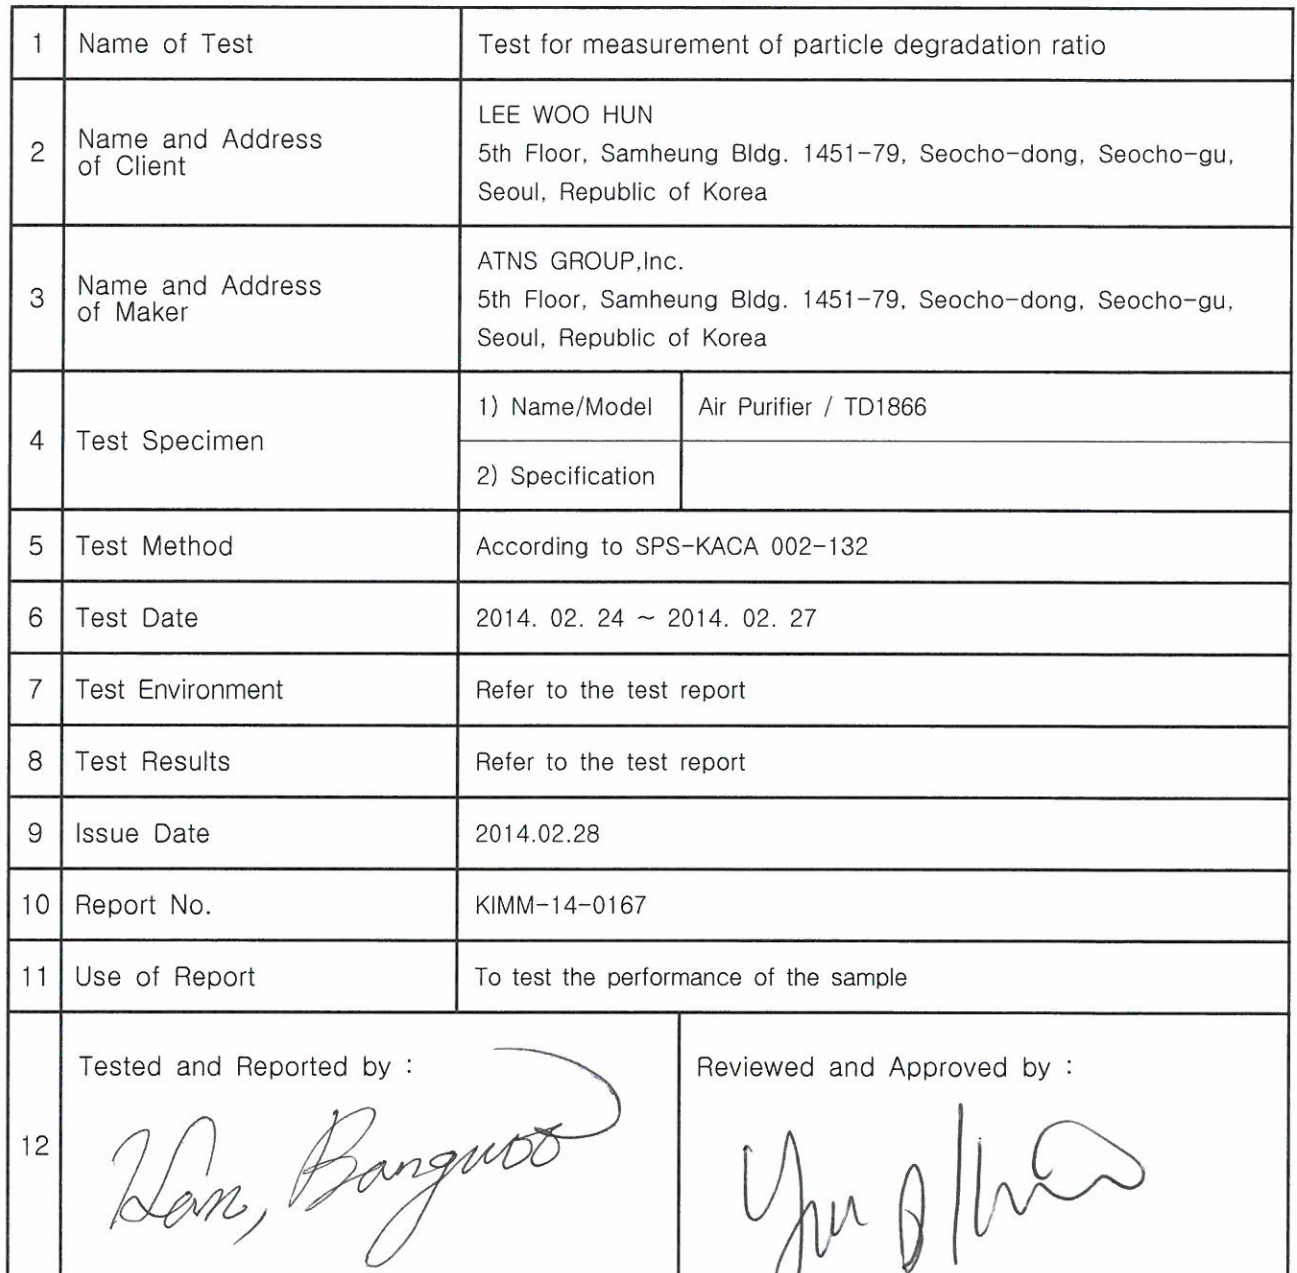 1 Name of Test Test for measurement of particle degradation ratio
2 Name and Address
of Client
LEE WOO HUN
5th Floor, Samheung Bldg. 1451-79, Seocho-dong, Seocho-gu,
Seoul, Republic of Korea
3 Name and Address
of Maker
ATNS GROUP,Inc.
5th Floor, Samheung Bldg. 1451-79, Seocho-dong, Seocho-gu,
Seoul, Republic of Korea
4 Test Specimen
1) Name/Model Air Purifier / TD1866
2) Specification
5 Test Method According to SPS-KACA 002-132
6 Test Date 2014. 02. 24 ~ 2014. 02. 27
7 Test Environment Refer to the test report
8 Test Results Refer to the test report
9 Issue Date 2014.02.28
10 Report No. KIMM-14-0167
11 Use of Report To test the performance of the sample
12
Tested and Reported by :
Han, Bangwoo
Reviewed and Approved by :